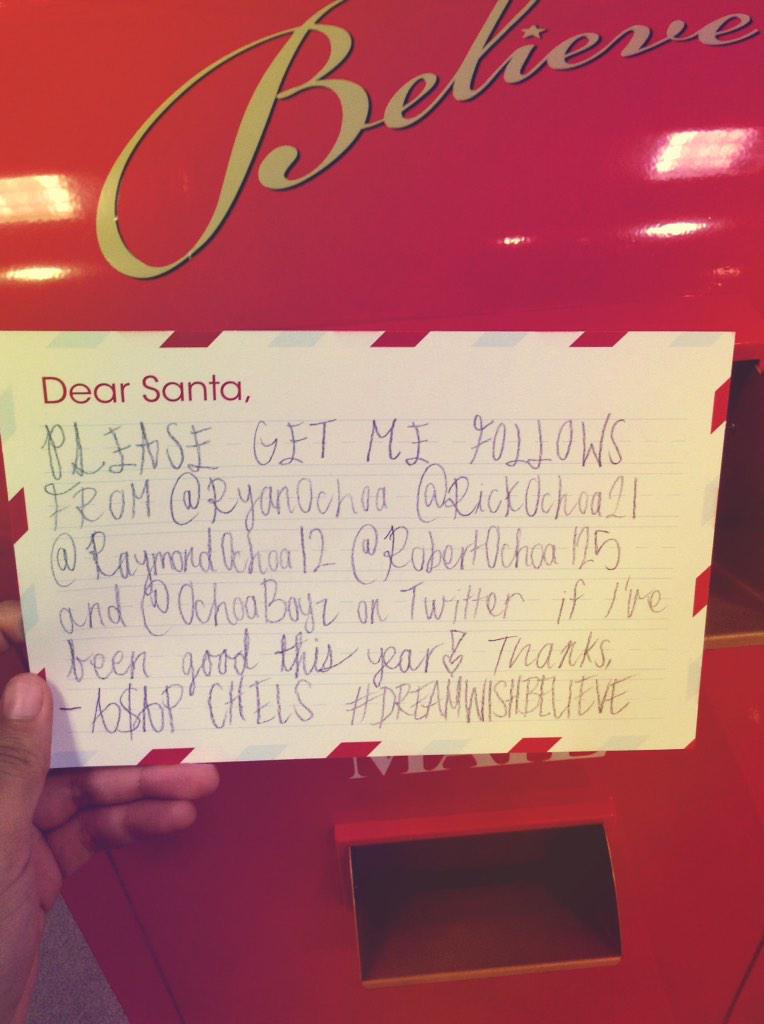 Believe
Dear Santa,
PLEASE GET ME FOLLOWS
FROM @RyanOchoa @RickOchoa21
@RaymondOchoa12 @RobertOchoa125
and @OchoaBoyz on Twitter if I've
been good this year! Thanks,
- A$AP CHELS #DREAMWISHBELIEVE
MAIL